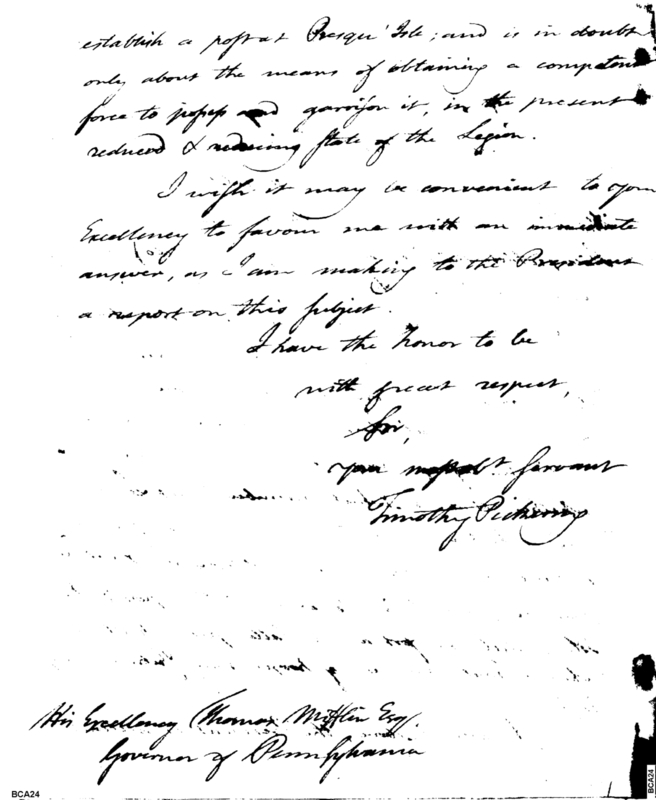 establish a post at Presqu' Isle; and is in doubt
only about the means of obtaining a competent
force to possess and garrison it, in the present
reduced & reducing state of the Legion.
I wish it may be convenient to your
Excellency to favour me with an immediate
answer, as I am making to the President
a report on this subject.
I have the honor to be
with great respect,
Sir,
your most obt servant
Timothy Pickering
His Excellency Thomas Mifflin Esq.
Governor of Pennsylvania
BCA24
BCA24